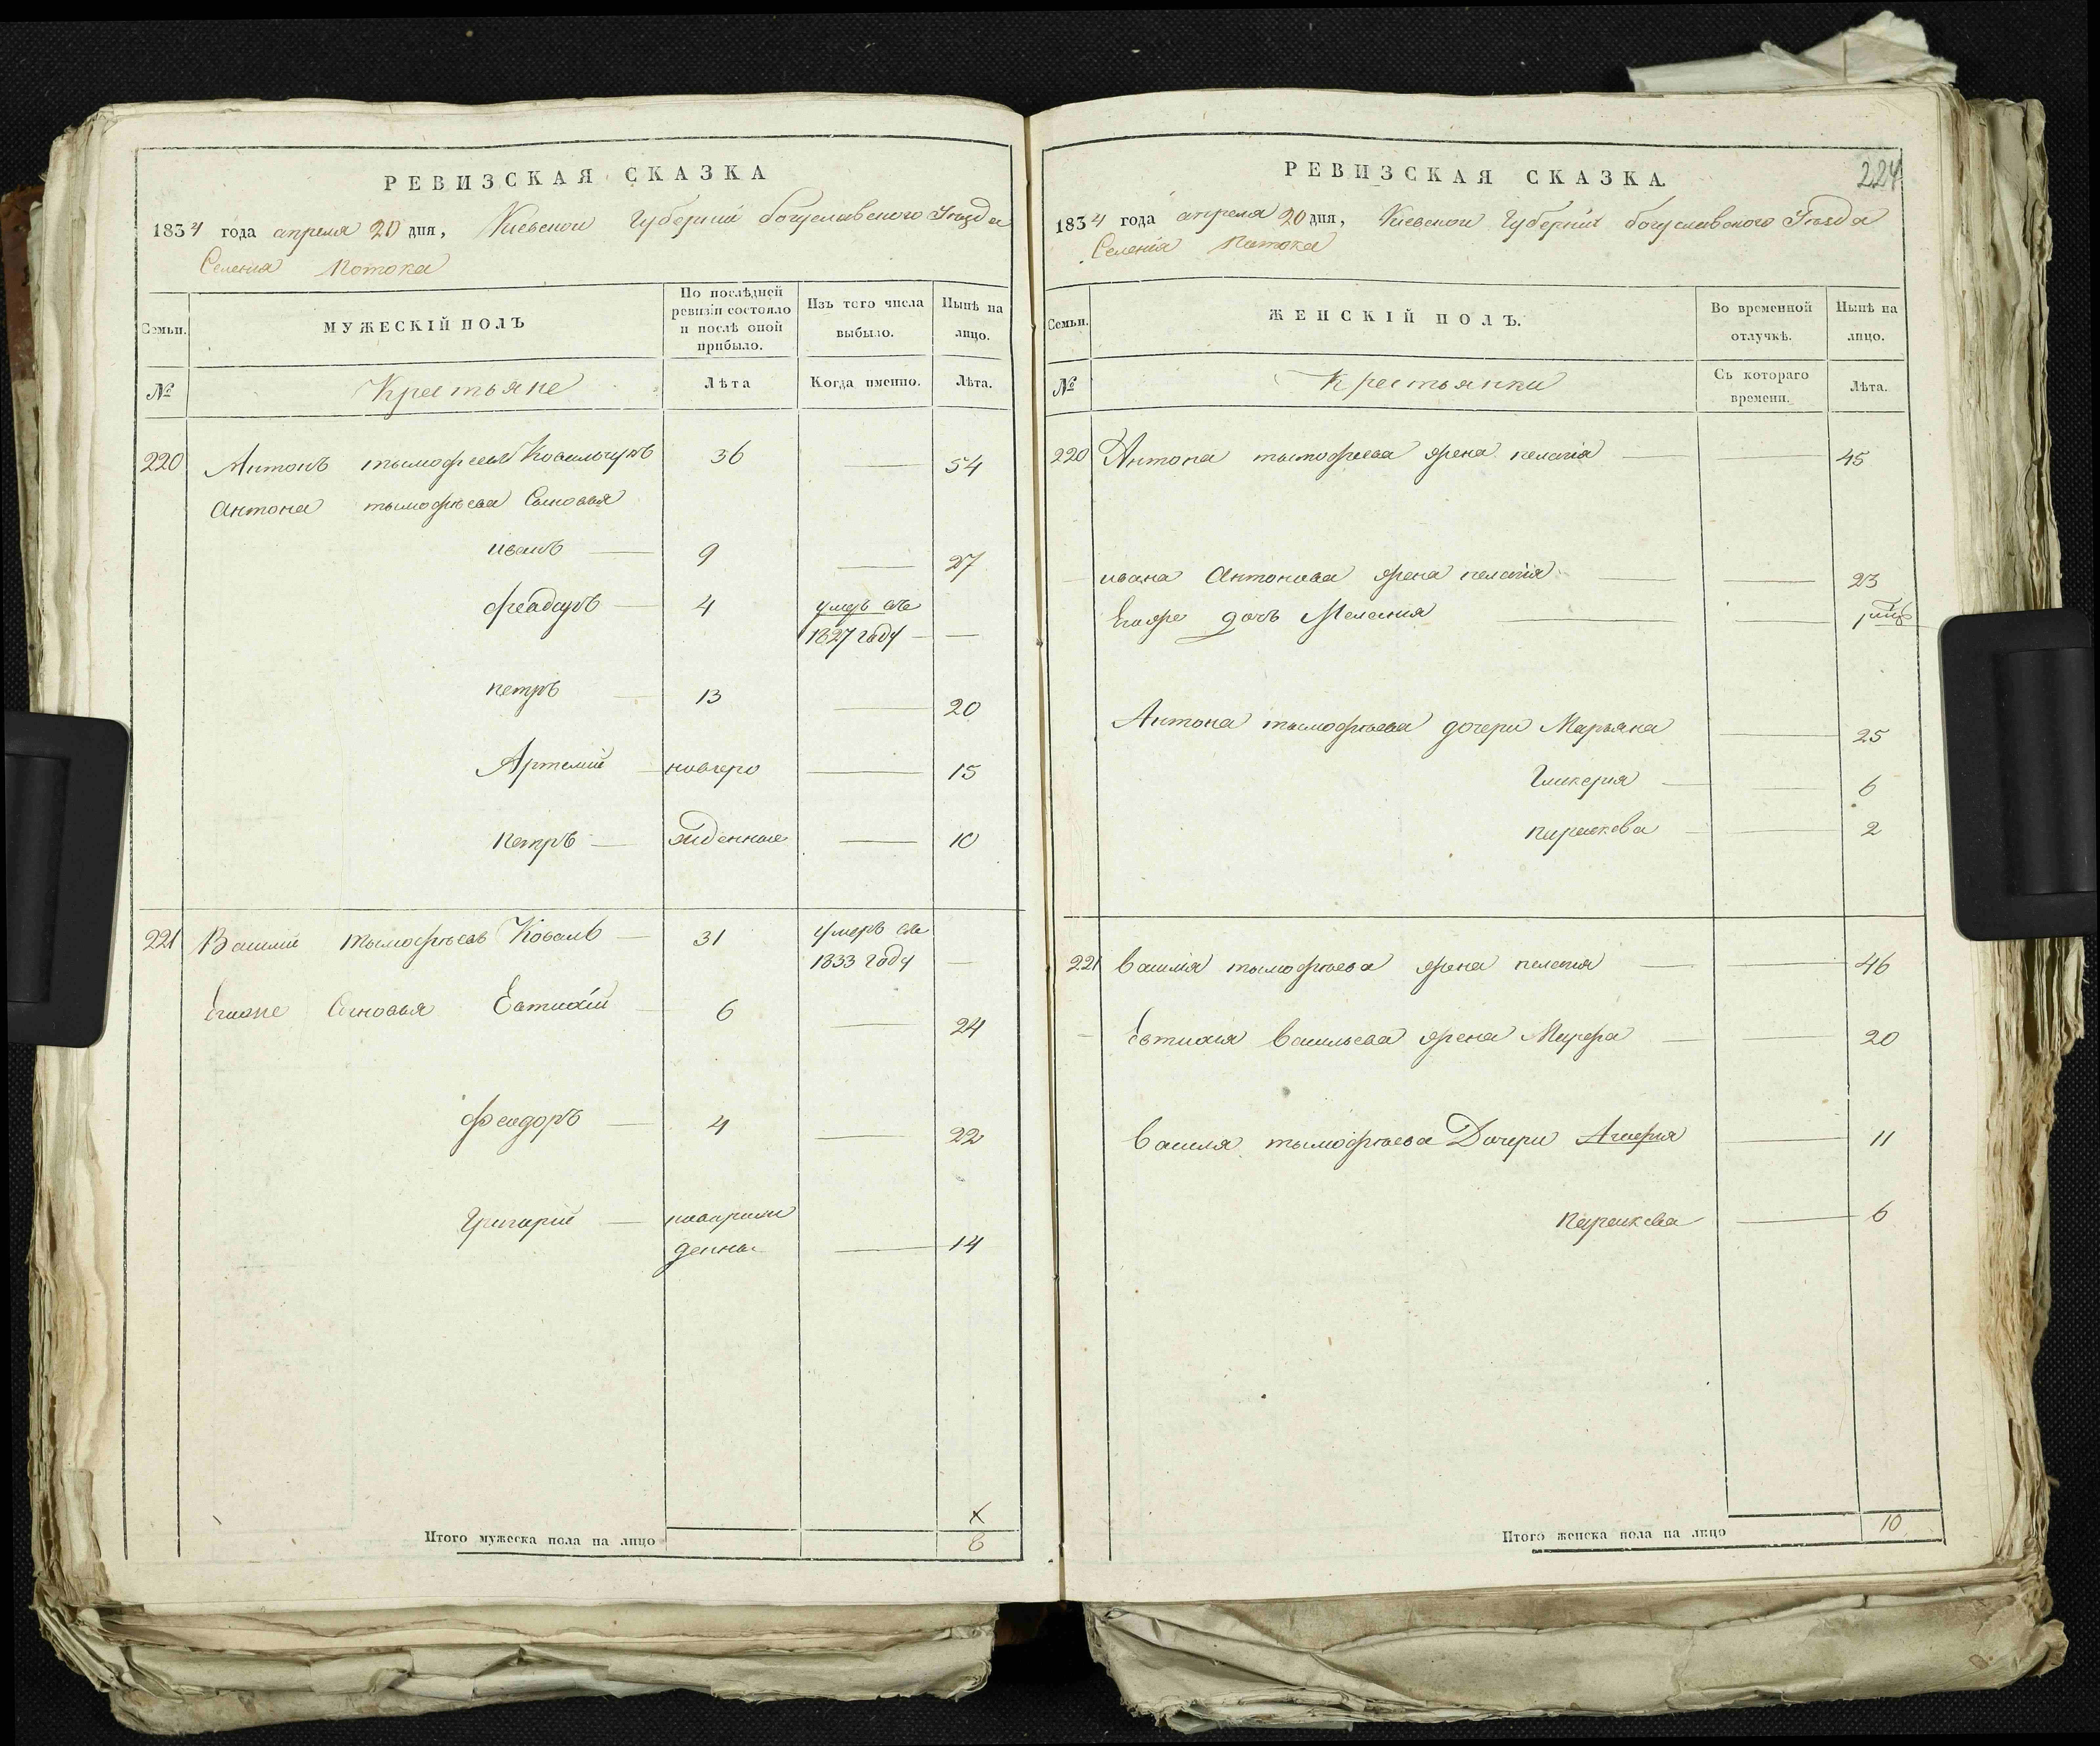 РЕВИЗСКАЯ СКАЗКА
1834 года апреля 20 дня, Киевской Губернии богуславского Уезда
Селения Потока
Семьи. МУЖЕСКІЙ ПОЛЪ По послѣдней ревизіи состояло и послѣ оной прибыло. Изъ того числа выбыло. Нынѣ на лицо.
№ Крестьяне Лѣта Когда имянно. Лѣта.
220 Антонъ тымофеевъ Ковальчукъ 36 54
Антона тымофѣева Сыновья
иванъ 9 27
феадоръ 4 умеръ въ
1827 году
петръ 13 20
Артемий новоро 15
Петръ жденные 10
221 Василий тымофѣевъ Коваль 31 умеръ въ
1833 году
Егоже Сыновья Евтихій 6 24
Феодоръ 4 22
Григорий новорож
денны 14
Итого мужеска пола на лицо 8
РЕВИЗСКАЯ СКАЗКА 224
1834 года апреля 20 дня, Киевской Губерніи богуславского Уезда
Селенія Потока
Семьи. ЖЕНСКІЙ ПОЛЪ. Во временной отлучкѣ. Нынѣ на лицо.
№ Крестьянки Съ котораго времени. Лѣта.
220 Антона тымофеева жена пелагия 45
ивана Антонова жена пелагия 23
Егоже дочь Мелания
Антона тымофѣева дочери Марьяна 25
Гликерия 6
параскева 2
221 Василия тымофѣева жена пелагия 46
Евтихия Васильева жена Марфа 20
Василя тымофѣева Дочери 11
Параскева 6
Итого женска пола на лицо 10